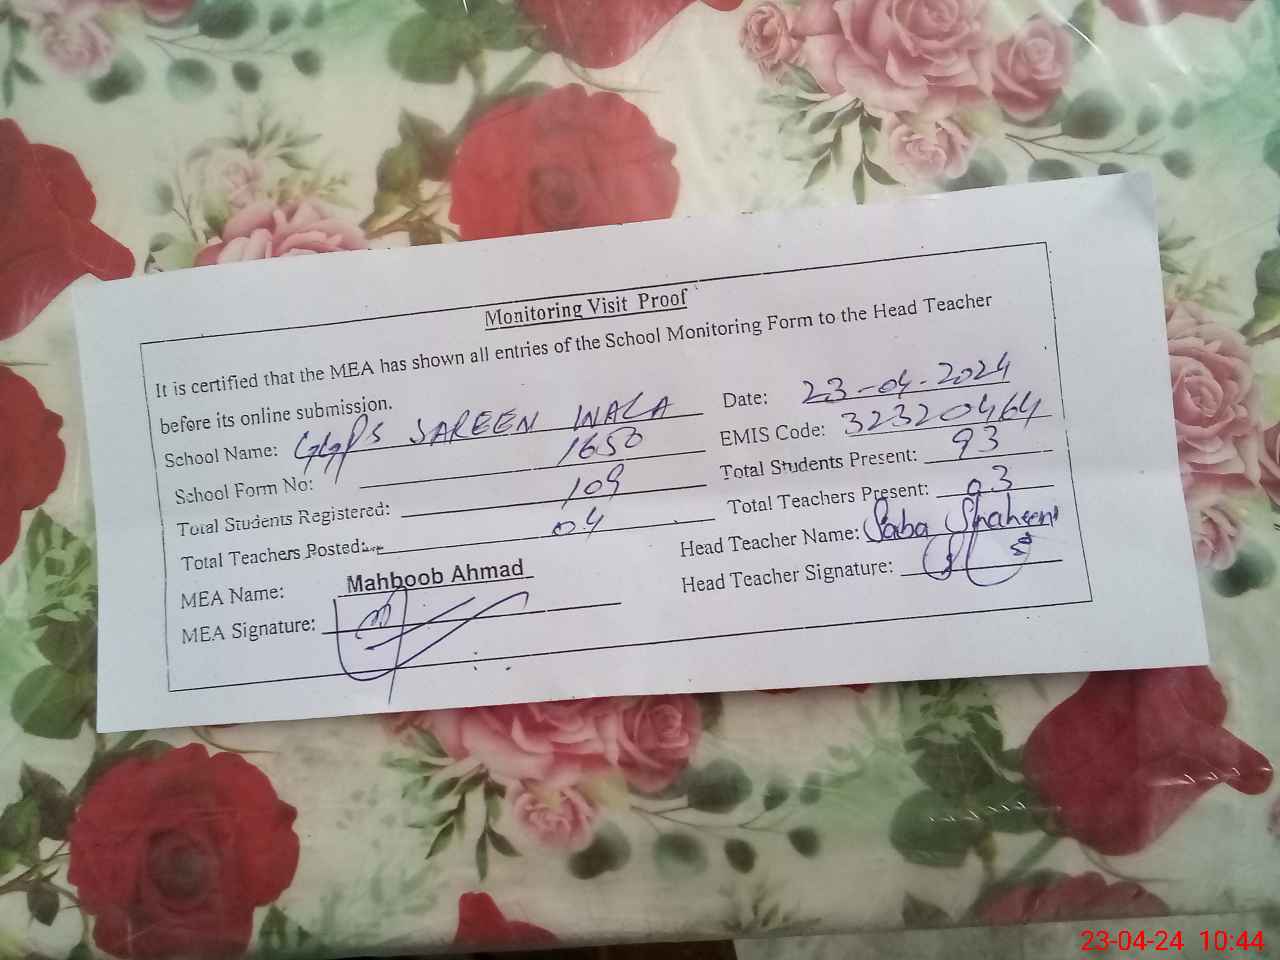 Monitoring Visit Proof
It is certified that the MEA has shown all entries of the School Monitoring Form to the Head Teacher
before its online submission.
Date: 23-04-2024
School Name: GGPS SAREEN WALA
EMIS Code: 32320464
School Form No: 1650
Total Students Present: 93
Total Students Registered: 109
Total Teachers Present: 03
Total Teachers Posted: 04
Head Teacher Name: Saba Shaheen
MEA Name: Mahboob Ahmad
Head Teacher Signature:
MEA Signature:
23-04-24 10:44